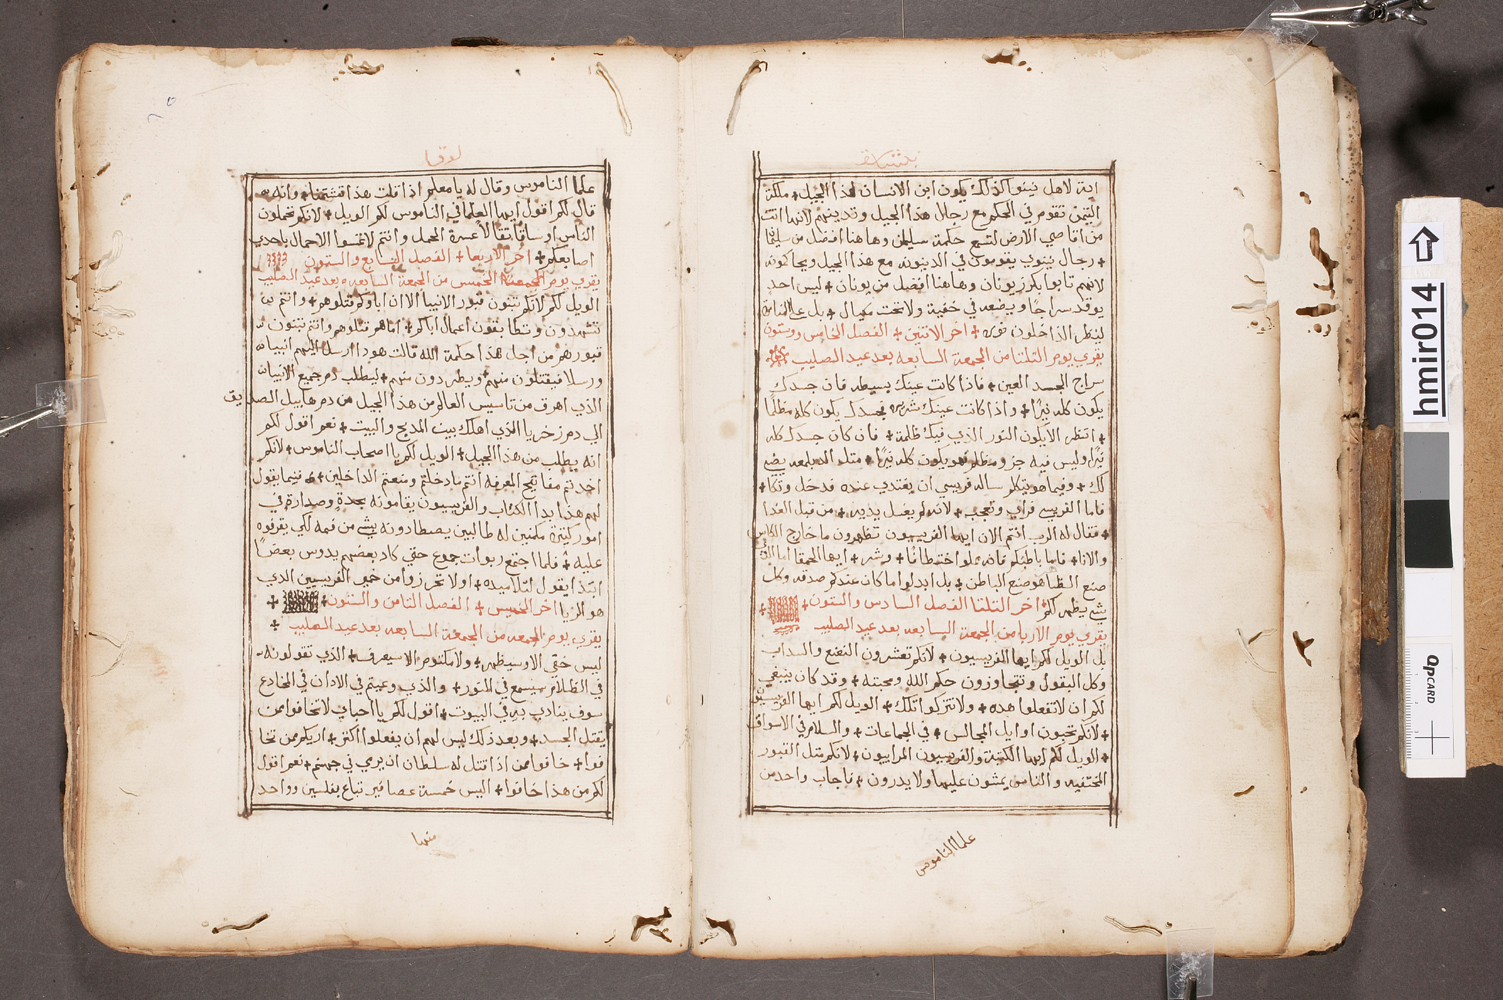 بشارة
اية لاهل نينوا كذلك يكون ابن الانسان لهذا الجيل + ملكة
التيمن تقوم في الحكم مع رجال هذا الجيل وتدينهم لانها اتت
من اقاصي الارض لتسمع حكمة سليمان وهاهنا افضل من سليمان
+ رجال نينوي يقومون في الدينونه مع هذا الجيل ويحاكمونه
لانهم تابوا بكرز يونان وهاهنا افضل من يونان + ليس احد
يوقد سراجًا ويضعه في خفية ولا تحت مكيال + بل علي المناره
لينظر الداخلون نوره + اخر الاتنين + الفصل الخامس وستون
يقري يوم التلتا من الجمعة السابعه بعد عيد الصليب
سراج الجسد العين + فاذا كانت عينك بسيطه فان جسدك
يكون كله نيرًا + واذا كانت عينك شريره فجسدك يكون كله مظلمًا
+ انتظر الا يكون النور الذي فيك ظلمة + فان كان جسدك كله
نيرًا وليس فيه جزو مظلم فهو يكون كله نيرًا + متل السراج يضي
لك + وفيما هو يتكلم ساله فريسي ان يغتدي عنده فدخل وتكا +
فاما الفريسي فراي وتعجب + لانه لم يغسل يديه + من قبل الغدا
+ فقال له الرب انتم الان ايها الفريسيون تطهرون ما خارج الكاس
والانا + فاما باطنكم فانه مملوا اختطافًا + وشر + ايها الحمقا اما الذي
صنع الظاهر هو صنع الباطن + بل ابدلوا ما كان عندكم صدقه وكل
شي يطهر لكم + اخر التلتا الفصل السادس والستون +
يقري يوم الاربعا من الجمعة السابعه بعد عيد الصليب
بل الويل لكم ايها الفريسيون + لانكم تعشرون النعنع والسداب
وكل البقول وتتجاوزون حكم الله ومحبته + وقد كان ينبغي
لكم ان لا تفعلوا هده + ولا تتركوا تلك + الويل لكم ايها الفريسيون
+ لانكم تحبون اوايل المجالس + في الجماعات + والسلام في الاسواق
+ الويل لكم ايها الكتبة والفريسيون المراييون + لانكم متل القبور
المختفيه والناس يمشون عليها ولا يدرون + فاجاب واحد من
علما الناموس
لوقا
علما الناموس وقال له يا معلم اذا قلت هذا فتشتمنا + وانه
قال لكم اقول ايها العلما في الناموس لكم الويل + لانكم تحملون
الناس اوساقًا تقالا عسرة الحمل وانتم لا تمسوا الاحمال باحدي
اصابعكم + اخر الاربعا + الفصل السابع والستون
يقري يوم الخميس من الجمعة السابعه بعد عيد الصليب
الويل لكم لانكم تبنون قبور الانبيا الان اباوكم قتلوهم + وانتم
تشهدون وتطابقون اعمال اباكم + اما هم قتلوهم وانتم تبنون
قبورهم من اجل هذا حكمة الله قالت هودا ارسل اليهم انبيا
ورسلا فيقتلون منهم ويطردون منهم + ليطلب دم جميع الانبيا
الذي اهرق من تاسيس العالم من هذا الجيل من دم هابيل الصديق
الي دم زخريا الذي اهلك بين المدبح والبيت + نعم اقول لكم
انه يطلب من هذا الجيل + الويل لكم يا اصحاب الناموس + لانكم
اخدتم مفاتيح المعرفه انتم ما دخلتم ومنعتم الداخلين + فبينما يقول
لهم هذا بدا الكتاب والفريسيون يقاومونه بحدةٍ وصدارةٍ في
امور كتيرة مكمنين له طالبين يصطادونه بشي من فمه لكي يقرفوه
عليه + فلما اجتمع ربوات جموع حتي كاد بعضهم يدوس بعضًا
ابتدا يقول لتلاميده + اولا تحرزوا من خمير الفريسين الدي
هو الريا اخر الخميس + الفصل التامن والستون +
يقري يوم الجمعه من الجمعة السابعه بعد عيد الصليب +
ليس خفي الا وسيظهر + ولا مكتوم الا سيعرف + الذي تقولونه
في الظلام سيسمع في النور + والذي وعيتم في الادان في المخادع
سوف ينادي به في البيوت + اقول لكم يا احباي لا تخافوا ممن
يقتل الجسد + وبعد ذلك ليس لهم ان يفعلوا اكتر + اريكم ممن تخا
فوا + خافوا ممن اذا قتل له سلطان ان يرمي في جهنم + نعم اقول
لكم من هذا خافوا + اليس خمسة عصافير تباع بفلسين وواحد
منها
hmir014
QPCARD